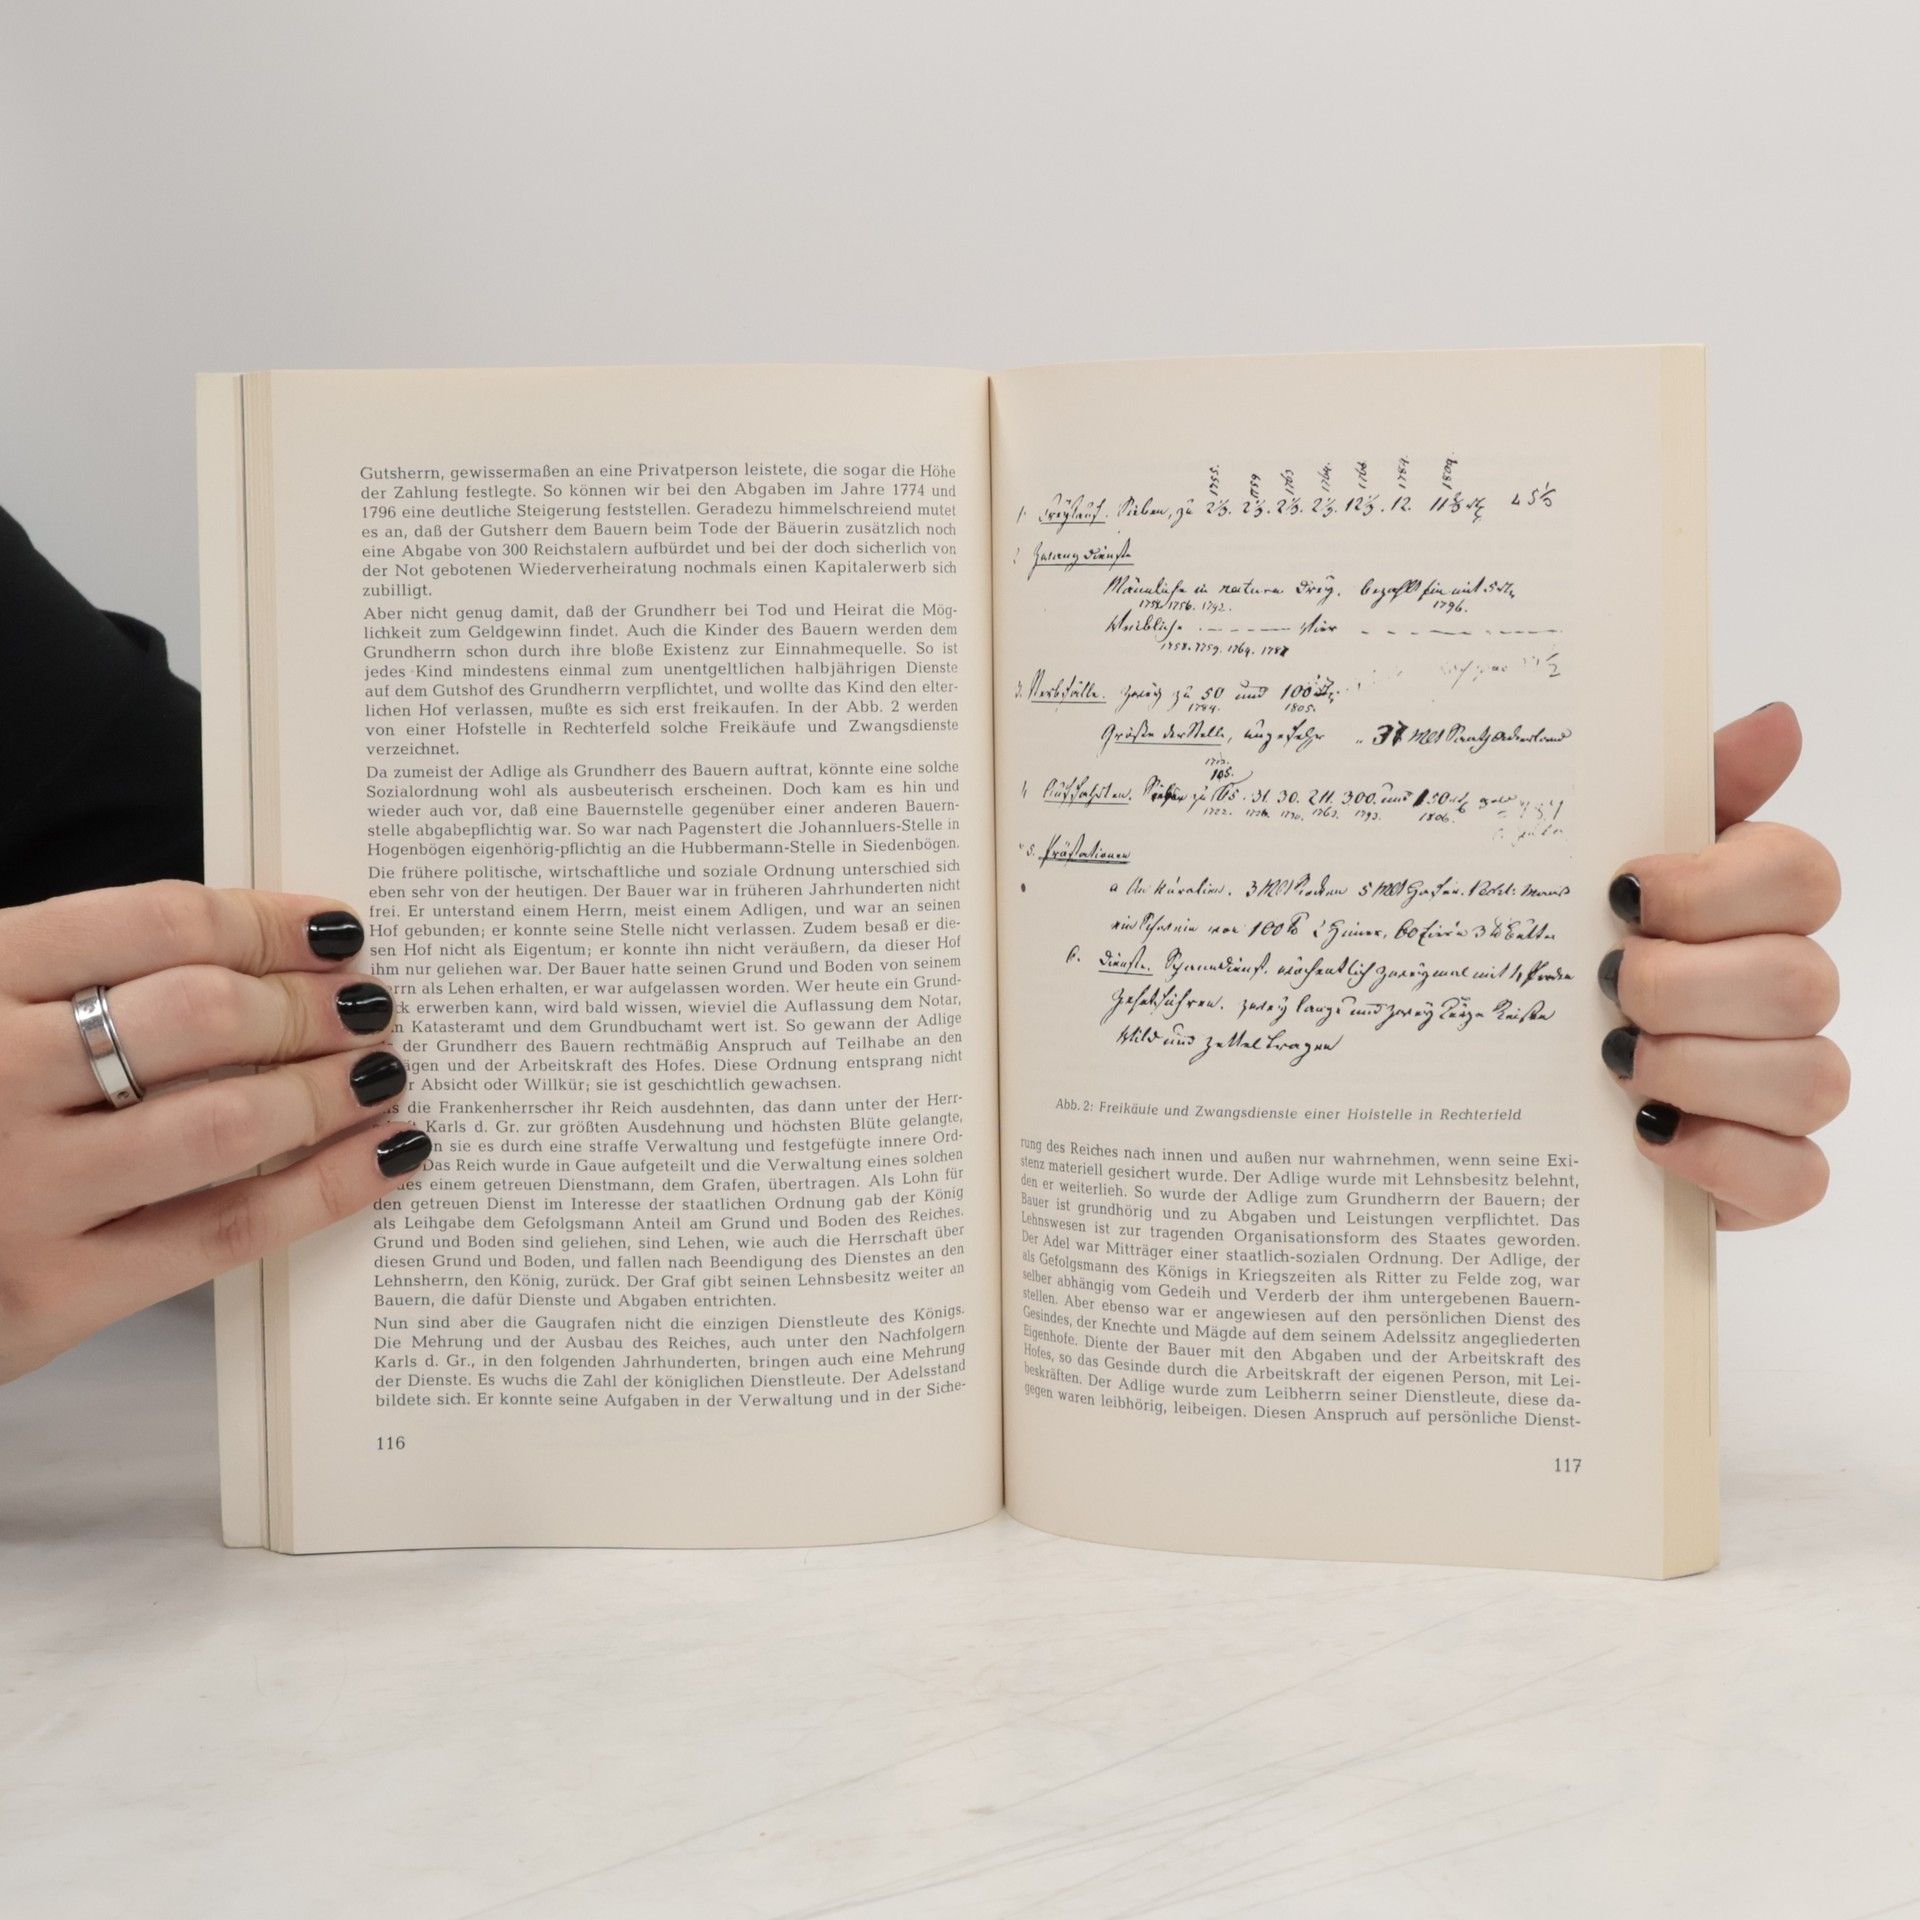 Gutsherrn, gewissermaßen an eine Privatperson leistete, die sogar die Höhe
der Zahlung festlegte. So können wir bei den Abgaben im Jahre 1774 und
1796 eine deutliche Steigerung feststellen. Geradezu himmelschreiend mutet
es an, daß der Gutsherr dem Bauern beim Tode der Bäuerin zusätzlich noch
eine Abgabe von 300 Reichstalern aufbürdet und bei der doch sicherlich von
der Not gebotenen Wiederverheiratung nochmals einen Kapitalerwerb sich
zubilligt.
Aber nicht genug damit, daß der Grundherr bei Tod und Heirat die Mög-
lichkeit zum Geldgewinn findet. Auch die Kinder des Bauern werden dem
Grundherrn schon durch ihre bloße Existenz zur Einnahmequelle. So ist
jedes Kind mindestens einmal zum unentgeltlichen halbjährigen Dienste
auf dem Gutshof des Grundherrn verpflichtet, und wollte das Kind den elter-
lichen Hof verlassen, mußte es sich erst freikaufen. In der Abb. 2 werden
von einer Hofstelle in Rechterfeld solche Freikäufe und Zwangsdienste
verzeichnet.
Da zumeist der Adlige als Grundherr des Bauern auftrat, könnte eine solche
Sozialordnung wohl als ausbeuterisch erscheinen. Doch kam es hin und
wieder auch vor, daß eine Bauernstelle gegenüber einer anderen Bauern-
stelle abgabepflichtig war. So war nach Pagenstert die Johannluers-Stelle in
Hogenbögen eigenhörig-pflichtig an die Hubbermann-Stelle in Siedenbögen.
Die frühere politische, wirtschaftliche und soziale Ordnung unterschied sich
eben sehr von der heutigen. Der Bauer war in früheren Jahrhunderten nicht
frei. Er unterstand einem Herrn, meist einem Adligen, und war an seinen
Hof gebunden; er konnte seine Stelle nicht verlassen. Zudem besaß er die-
sen Hof nicht als Eigentum; er konnte ihn nicht veräußern, da dieser Hof
ihm nur geliehen war. Der Bauer hatte seinen Grund und Boden von seinem
als Lehen erhalten, er war aufgelassen worden. Wer heute ein Grund-
erwerben kann, wird bald wissen, wieviel die Auflassung dem Notar,
Katasteramt und dem Grundbuchamt wert ist. So gewann der Adlige
der Grundherr des Bauern rechtmäßig Anspruch auf Teilhabe an den
und der Arbeitskraft des Hofes. Diese Ordnung entsprang nicht
Absicht oder Willkür; sie ist geschichtlich gewachsen.
die Frankenherrscher ihr Reich ausdehnten, das dann unter der Herr-
Karls d. Gr. zur größten Ausdehnung und höchsten Blüte gelangte,
sie es durch eine straffe Verwaltung und festgefügte innere Ord-
Das Reich wurde in Gaue aufgeteilt und die Verwaltung eines solchen
einem getreuen Dienstmann, dem Grafen, übertragen. Als Lohn für
den getreuen Dienst im Interesse der staatlichen Ordnung gab der König
als Leihgabe dem Gefolgsmann Anteil am Grund und Boden des Reiches.
Grund und Boden sind geliehen, sind Lehen, wie auch die Herrschaft über
diesen Grund und Boden, und fallen nach Beendigung des Dienstes an den
Lehnsherrn, den König, zurück. Der Graf gibt seinen Lehnsbesitz weiter an
Bauern, die dafür Dienste und Abgaben entrichten.
Nun sind aber die Gaugrafen nicht die einzigen Dienstleute des Königs.
Die Mehrung und der Ausbau des Reiches, auch unter den Nachfolgern
Karls d. Gr., in den folgenden Jahrhunderten, bringen auch eine Mehrung
der Dienste. Es wuchs die Zahl der königlichen Dienstleute. Der Adelsstand
bildete sich. Er konnte seine Aufgaben in der Verwaltung und in der Siche-
116
1755. 1759 1764. 1784. 1804
Sieben, zu 2⅓. 2⅓. 2⅓. 2⅓. 12⅓. 12.
Zwang dienste
Männliche in natura drey. bezahlt
1756. 1792. 1796.
Weibliche Vier
1758. 1759. 1764. 1787
3. Sterbfälle. zwey zu 50 und 100
1784. 1805.
Größe der Stelle, ungefehr 37
105.
Auffahrten. Sieben zu 31. 30. 211. 300. und 150
1763. 1793. 1806.
5. Prästationen
a
ein Schwein von 100 60 Eier 3
b. Dienste. Spanndienst. wöchentlich zweymal mit 4 Pferden
zwey lange und zwey kurze Reisen
Wild und Zettel tragen
Abb. 2: Freikäufe und Zwangsdienste einer Hofstelle in Rechterfeld
rung des Reiches nach innen und außen nur wahrnehmen, wenn seine Exi-
stenz materiell gesichert wurde. Der Adlige wurde mit Lehnsbesitz belehnt,
den er weiterlieh. So wurde der Adlige zum Grundherrn der Bauern; der
Bauer ist grundhörig und zu Abgaben und Leistungen verpflichtet. Das
Lehnswesen ist zur tragenden Organisationsform des Staates geworden.
Der Adel war Mitträger einer staatlich-sozialen Ordnung. Der Adlige, der
als Gefolgsmann des Königs in Kriegszeiten als Ritter zu Felde zog, war
selber abhängig vom Gedeih und Verderb der ihm untergebenen Bauern-
stellen. Aber ebenso war er angewiesen auf den persönlichen Dienst des
Gesindes, der Knechte und Mägde auf dem seinem Adelssitz angegliederten
Eigenhofe. Diente der Bauer mit den Abgaben und der Arbeitskraft des
Hofes, so das Gesinde durch die Arbeitskraft der eigenen Person, mit Lei-
beskräften. Der Adlige wurde zum Leibherrn seiner Dienstleute, diese da-
gegen waren leibhörig, leibeigen. Diesen Anspruch auf persönliche Dienst-
117